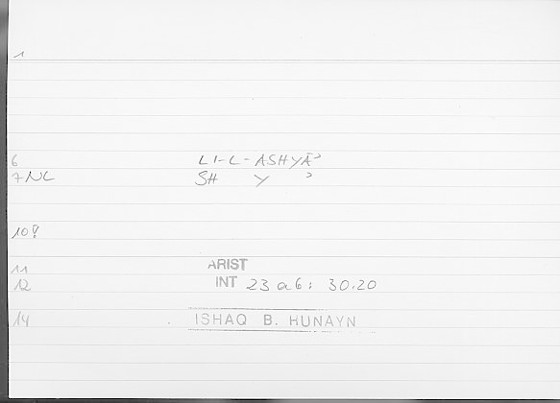 1
6 LI-L-ASHYĀʾ
7 NC SH Y ʾ
10?
11 ARIST
12 INT 23 a 6: 30.20
14 ISHAQ B. HUNAYN